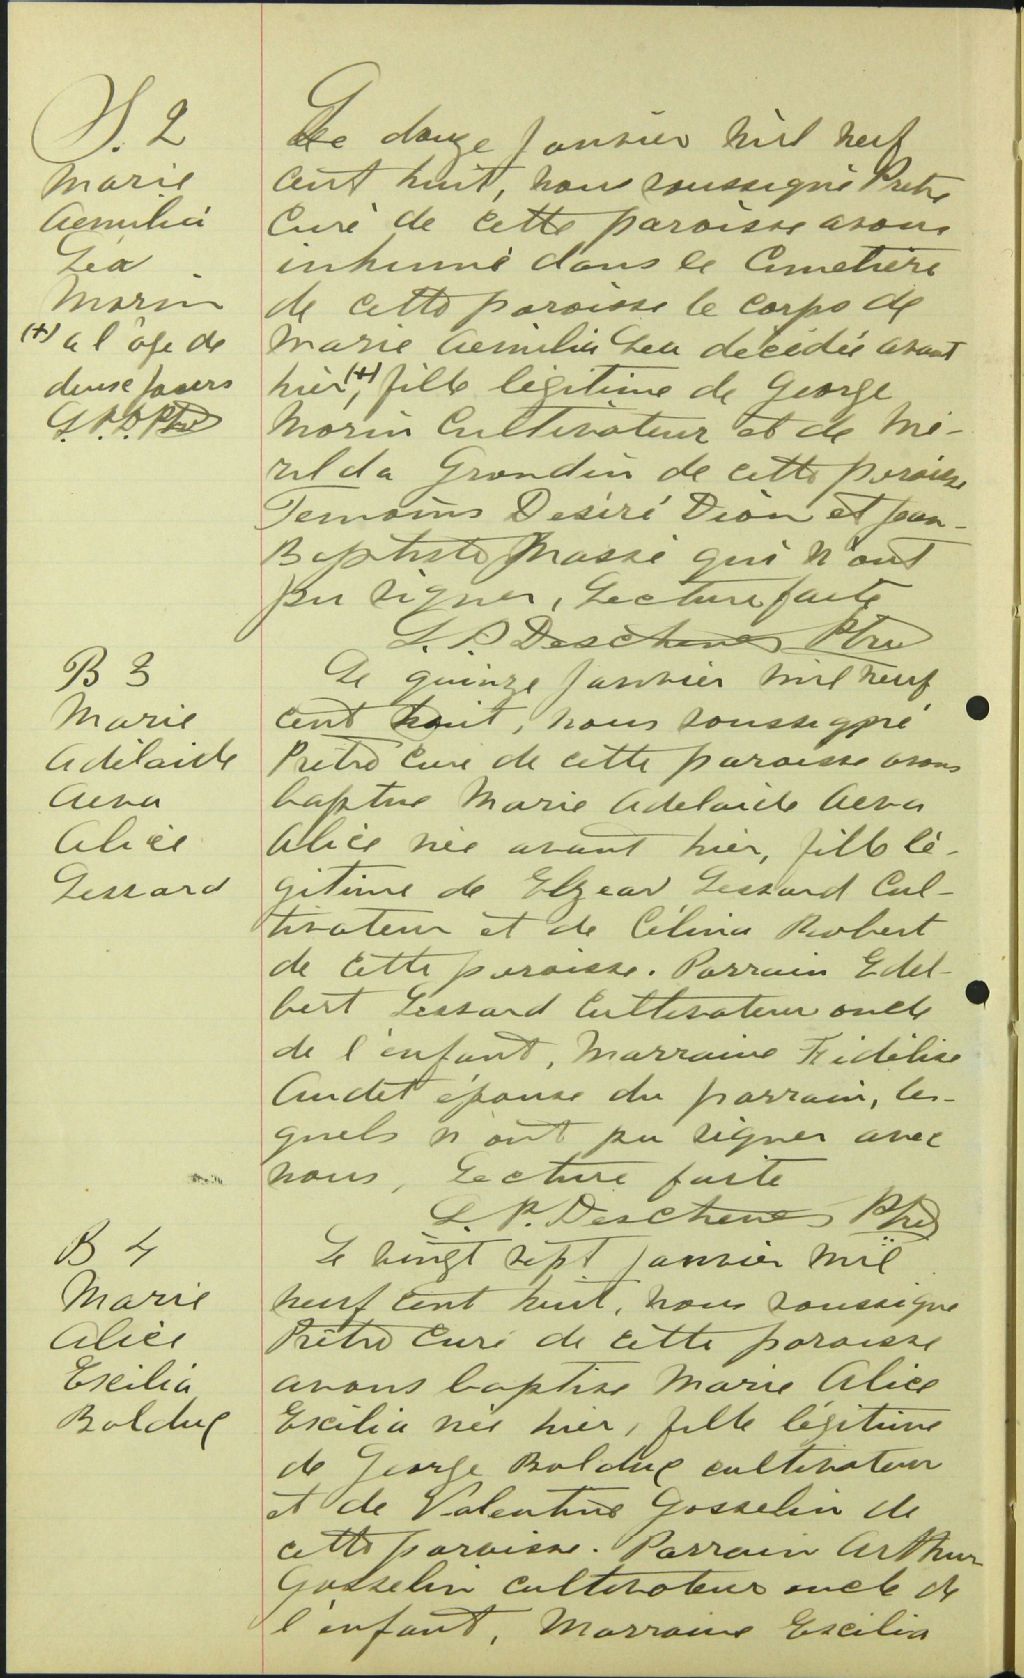 S. 2
Marie
Aemilia
Léa
Morin
(+) a l'âge de
deuse jours
L.P.D. Ptre
Le douze Janvier mil neuf
cent huit, nous soussigné Prêtre
Curé de cette paroisse avons
inhumé dans le Cimetière
de cette paroisse le corps de
Marie Aemilia Lea décédée avant
hier,(+) fille légitime de George
Morin Cultivateur et de Mé-
rilda Grondin de cette paroisse
Temoins Désiré Dion et Jean-
Baptiste Massé qui n'ont
pu signer, Lecture faite
L. P. Deschenes Ptre
B 3
Marie
Adélaide
Aeva
Alice
Lessard
Le quinze Janvier mil neuf
cent huit, nous soussigné
Prêtre Curé de cette paroisse avons
baptisé Marie Adelaide Aeva
Alice née avant hier, fille lé-
gitime de Elzear Lessard Cul-
tivateur et de Célina Robert
de cette paroisse. Parrain Edel-
bert Lessard Cultivateur oncle
de l'enfant, Marraine Fidélise
Audet épouse du parrain, les-
quels n'ont pu signer avec
nous, Lecture faite
L. P. Deschenes Ptre
B 4
Marie
Alice
Exilia
Bolduc
Le vingt sept Janvier mil
neuf cent huit, nous soussigné
Prêtre Curé de cette paroisse
avons baptisé Marie Alice
Exilia née hier, fille légitime
de George Bolduc cultivateur
et de Valentine Gosselin de
cette paroisse. Parrain Arthur
Gosselin cultivateur oncle de
l'enfant, Marraine Exilia